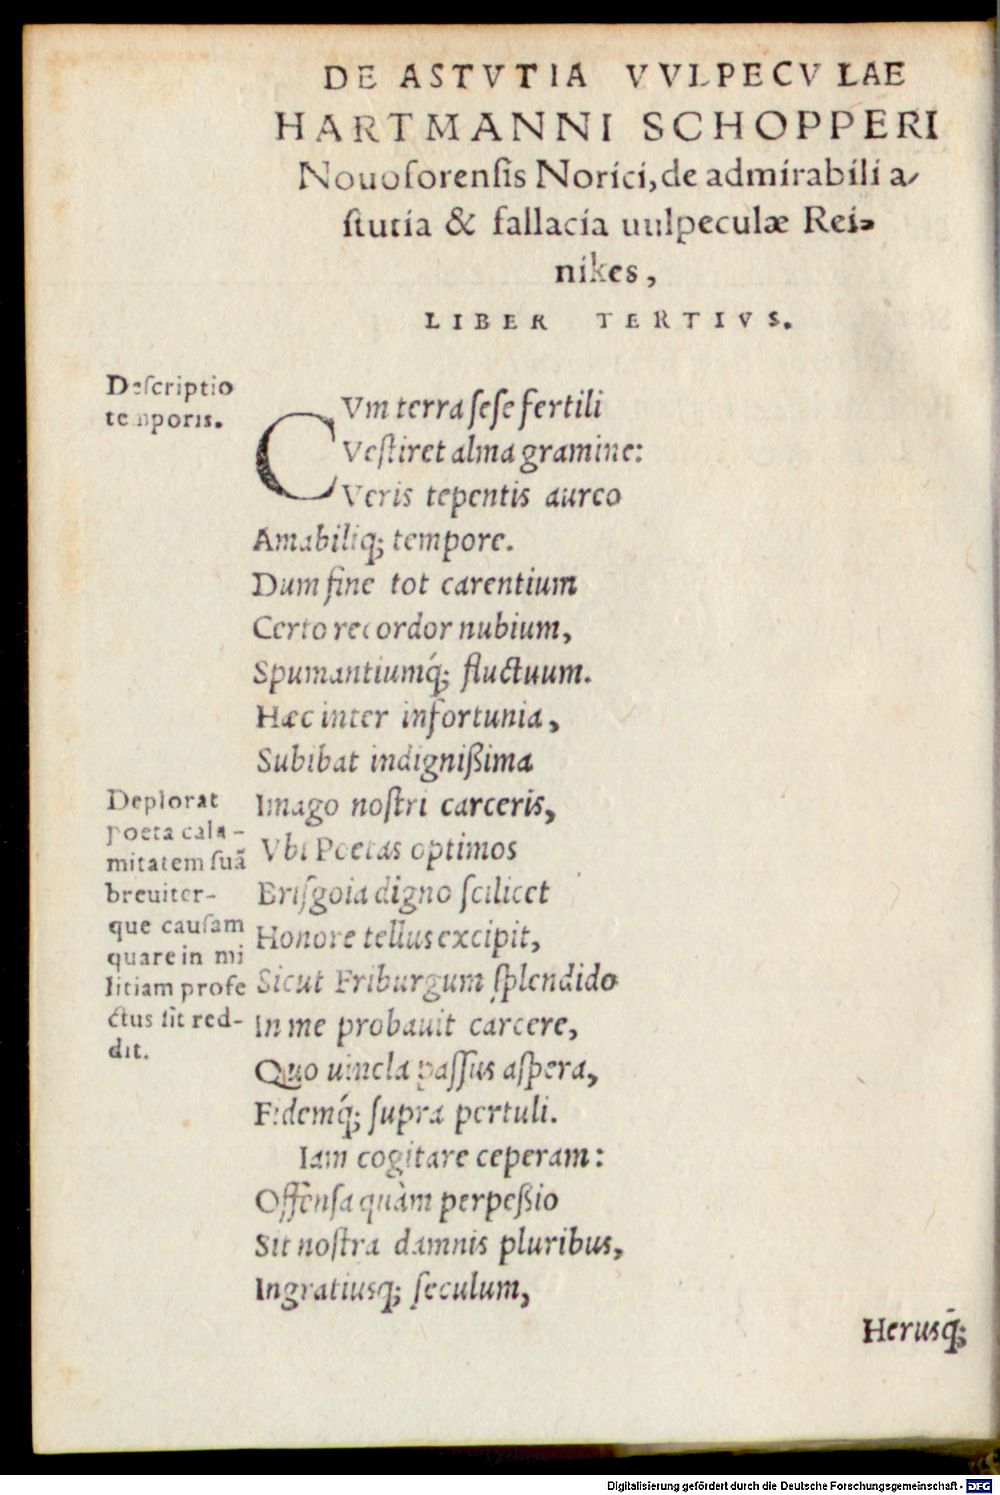 DE ASTVTIA VVLPECVLAE
HARTMANNI SCHOPPERI
Nouoforensis Norici, de admirabili a-
stutia & fallacia uulpeculæ Rei-
nikes,
LIBER TERTIVS.
Descriptio
temporis.
CVm terra sese fertili
Vestiret alma gramine:
Veris tepentis aureo
Amabiliq; tempore.
Dum fine tot carentium
Certo recordor nubium,
Spumantiumq́; fluctuum.
Hæc inter infortunia,
Subibat indignißima
Deplorat
poeta cala-
mitatem suã
breuiter-
que causam
quare in mi
litiam profe
ctus sit red-
dit.
Imago nostri carceris,
Vbi Poetas optimos
Brisgoia digno scilicet
Honore tellus excipit,
Sicut Friburgum splendido
In me probauit carcere,
Quo uincla passus aspera,
Fidemq́; supra pertuli.
Iam cogitare ceperam:
Offensa quàm perpeßio
Sit nostra damnis pluribus,
Ingratiusq; seculum,
Herusq́;
Digitalisierung gefördert durch die Deutsche Forschungsgemeinschaft - DFG